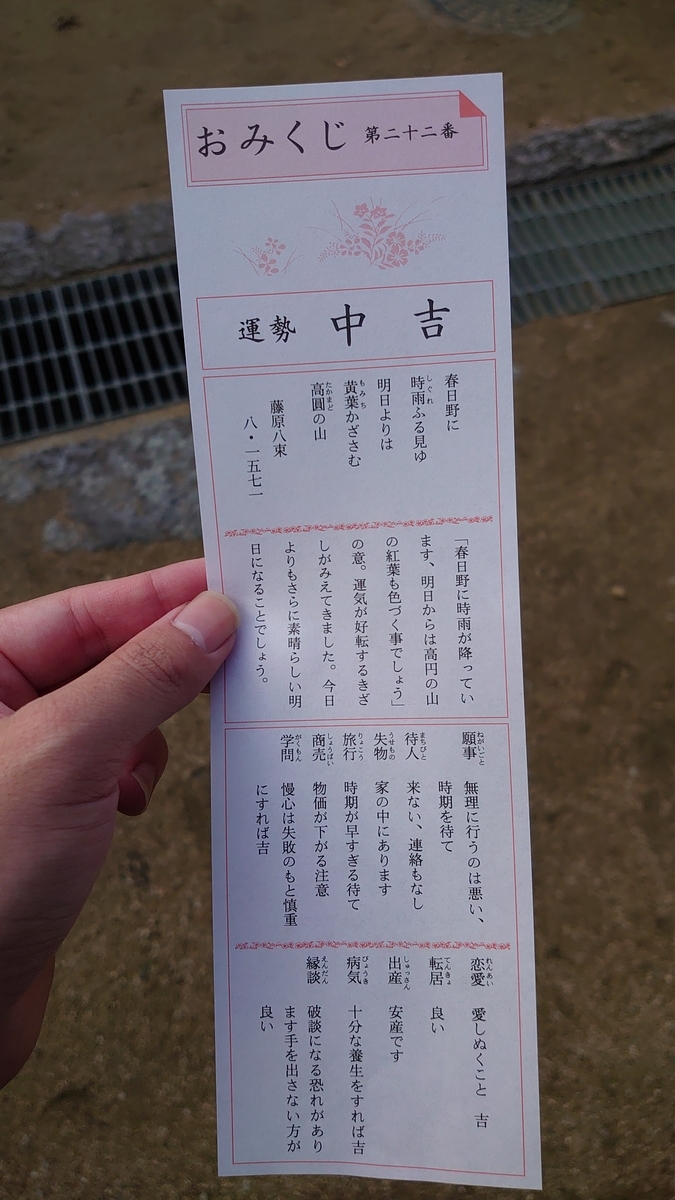 おみくじ 第二十二番
運勢 中吉
春日野に
時雨ふる見ゆ
しぐれ
明日よりは
黄葉かざさむ
もみち
高圓の山
たかまど
藤原八束
八・一五七一
「春日野に時雨が降ってい
ます、明日からは高円の山
の紅葉も色づく事でしょう」
の意。運気が好転するきざ
しがみえてきました。今日
よりもさらに素晴らしい明
日になることでしょう。
願事 無理に行うのは悪い、
ねがいごと
時期を待て
待人 来ない、連絡もなし
まちびと
失物 家の中にあります
うせもの
旅行 時期が早すぎる待て
りょこう
商売 物価が下がる注意
しょうばい
学問 慢心は失敗のもと慎重
がくもん
にすれば吉
恋愛 愛しぬくこと 吉
れんあい
転居 良い
てんきょ
出産 安産です
しゅっさん
病気 十分な養生をすれば吉
びょうき
縁談 破談になる恐れがあり
えんだん
ます手を出さない方が
良い